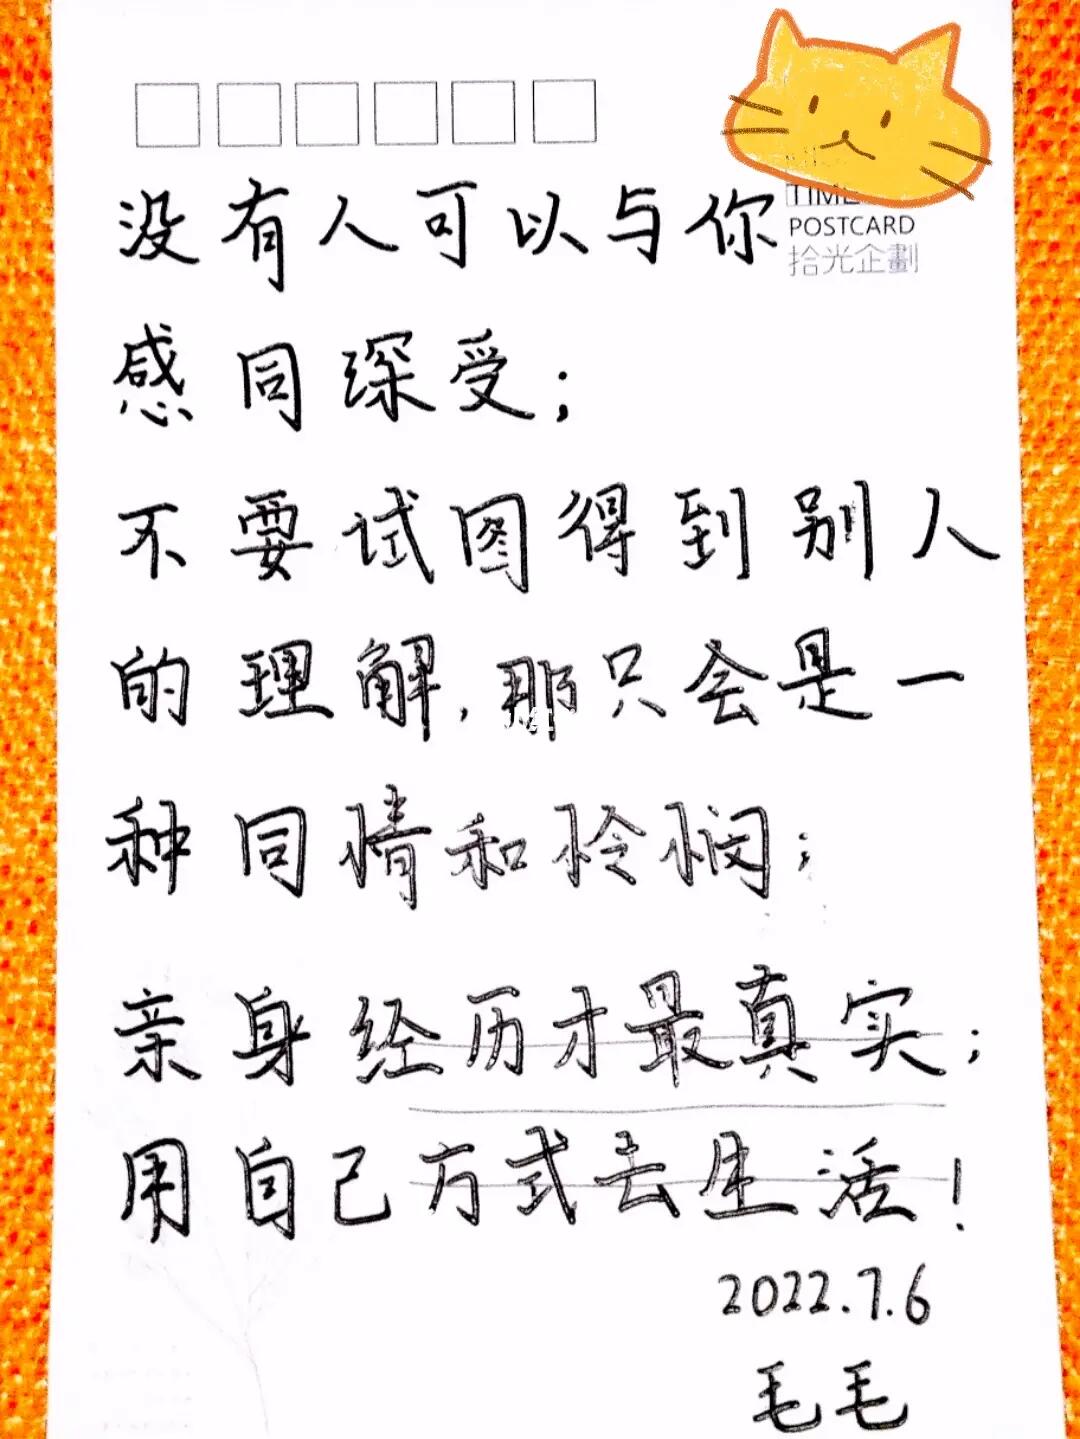 TIME
POSTCARD
拾光企劃
没有人可以与你
感同深受；
不要试图得到别人
的理解，那只会是一
种同情和怜悯；
亲身经历才最真实；
用自己方式去生活！
2022.7.6
毛毛